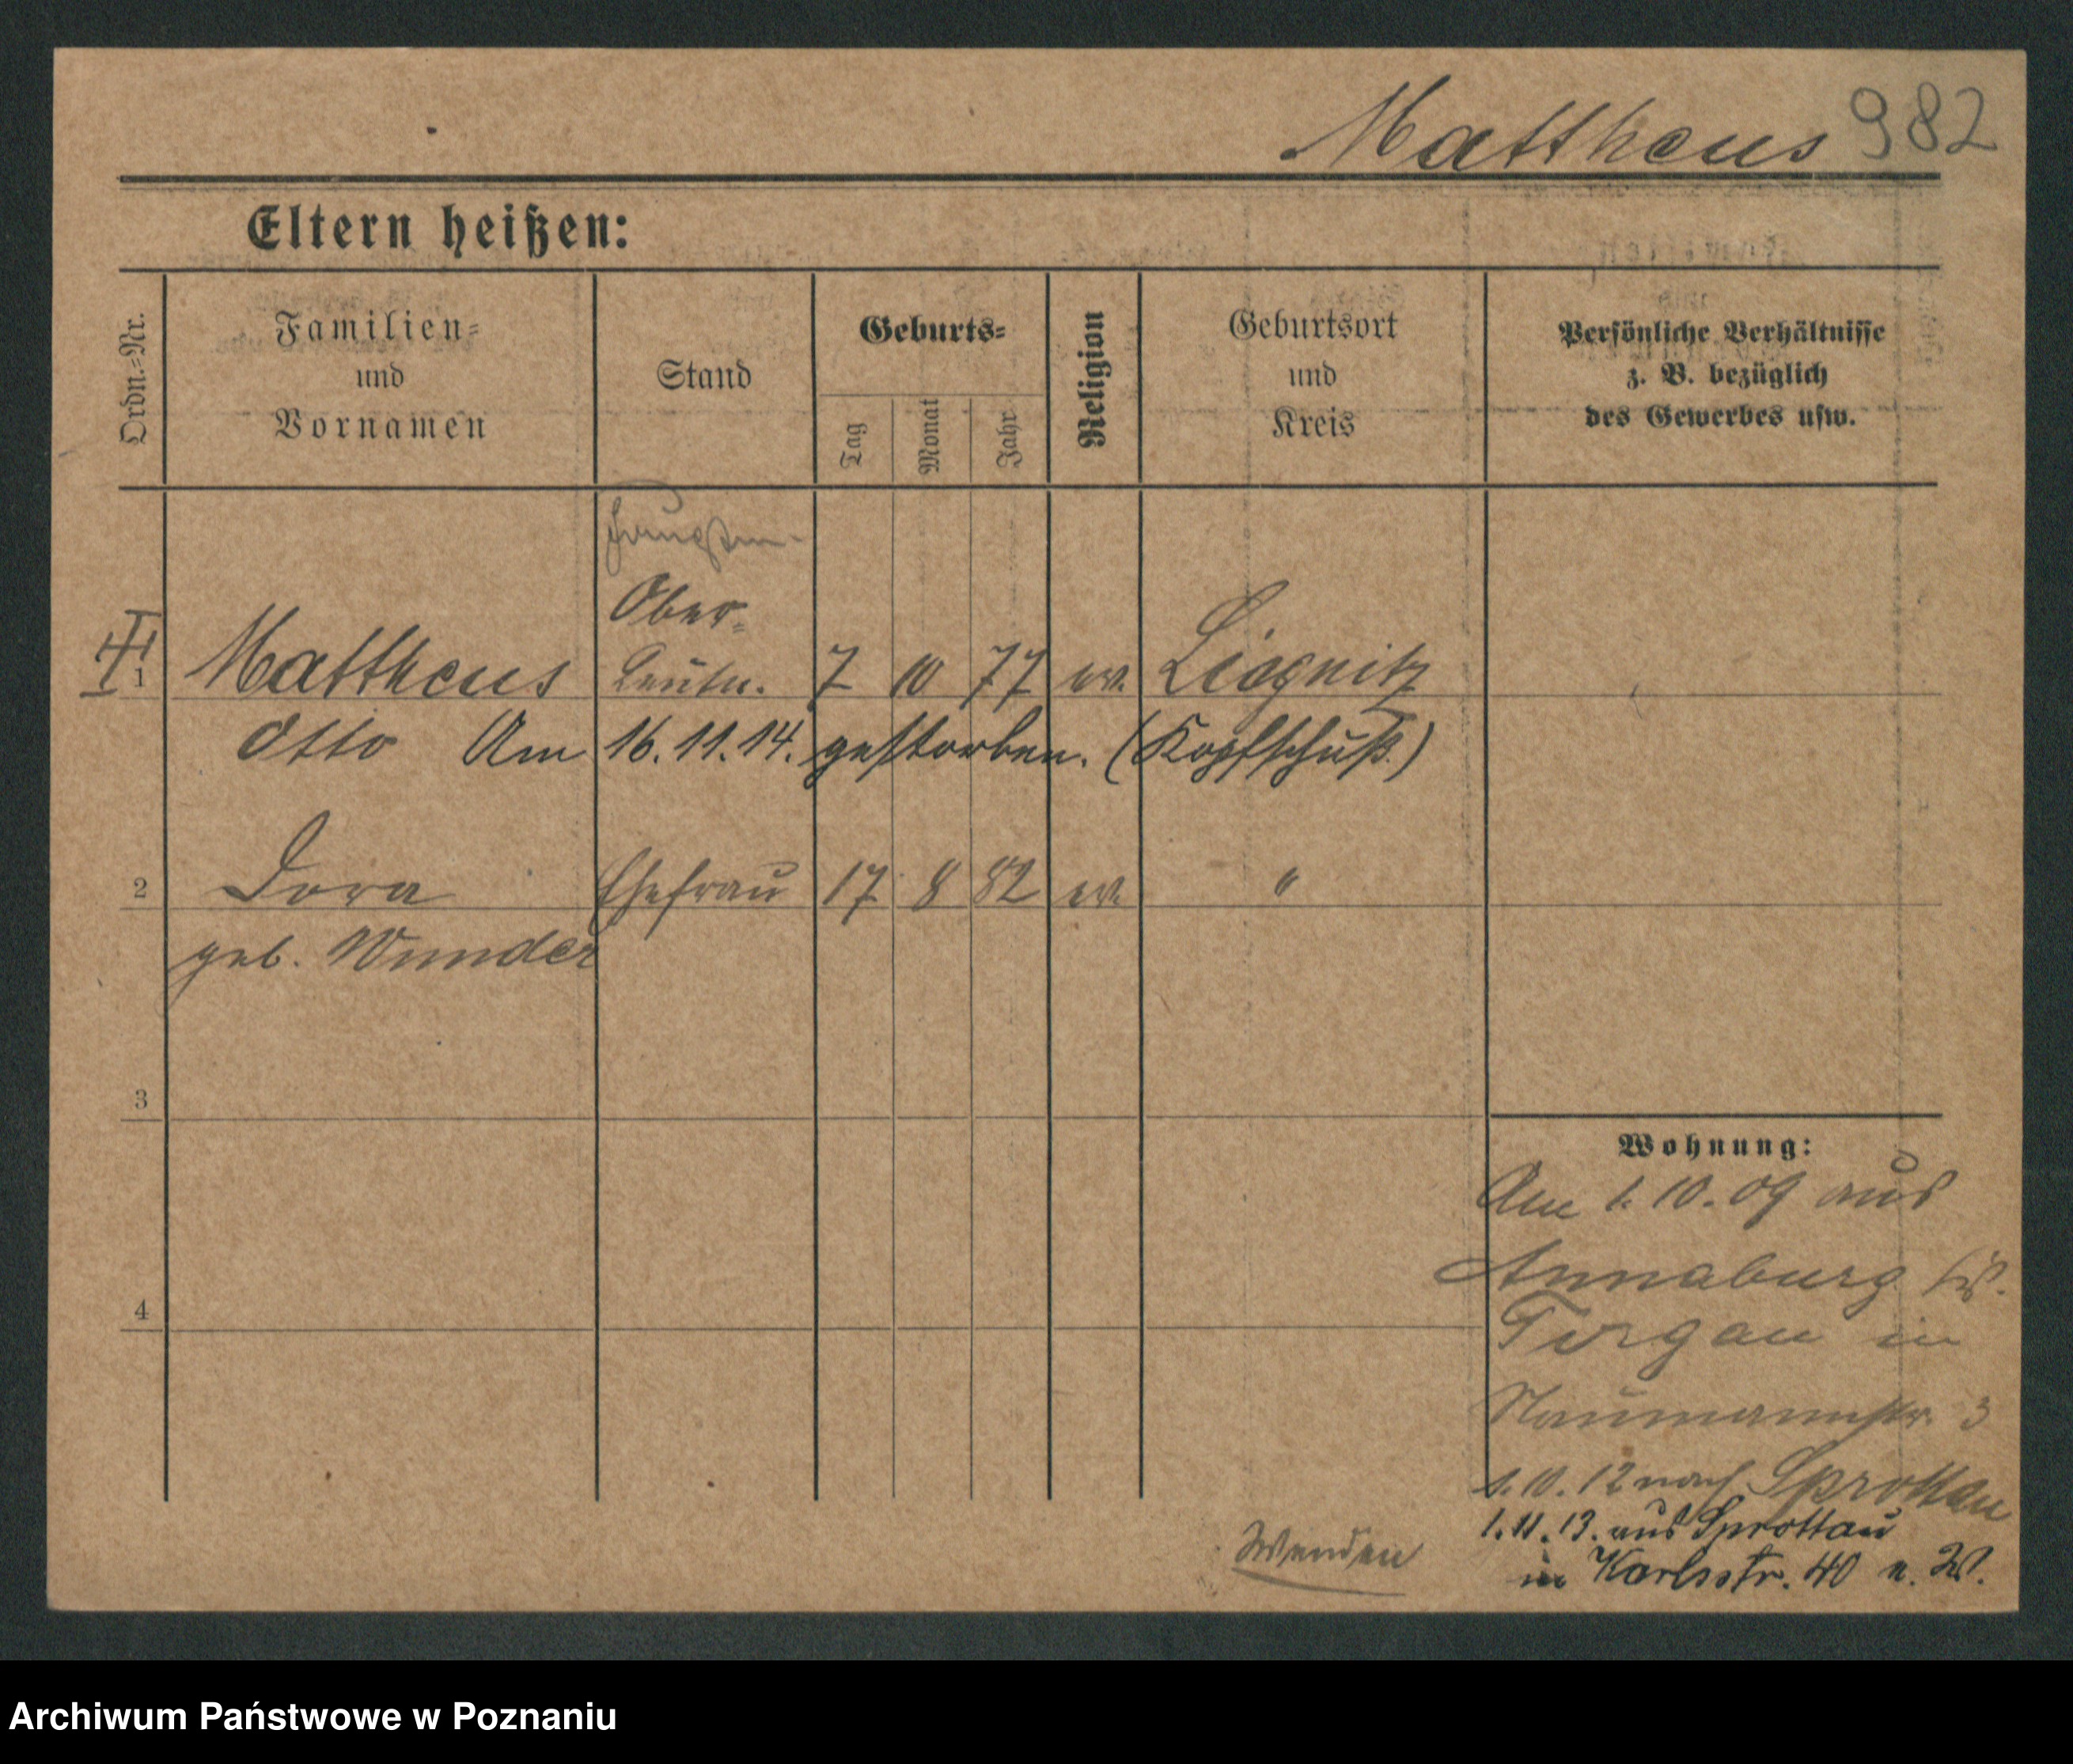 Mattheus 982
Eltern heißen:
Ordn.=Nr.
Familien=
und
Vornamen
Stand
Geburts=
Tag
Monat
Jahr
Religion
Geburtsort
und
Kreis
Persönliche Verhältnisse
z. B. bezüglich
des Gewerbes usw.
Hauptm.
Ober=
1 Mattheus Leutn. 7 10 77 ev. Liegnitz
Otto Am 16.11.14. gestorben. (Kopfschuß.)
2 Dora Ehefrau 17 8 82 ev. "
geb. Wunder
3
4
Wohnung:
Am 1.10.09 aus
Annaburg
Torgau in
Naumannstr. 3
1.10.12 nach Sprottau
1.11.13. aus Sprottau
in Karlsstr. 40 n. W.
Wenden
Archiwum Państwowe w Poznaniu